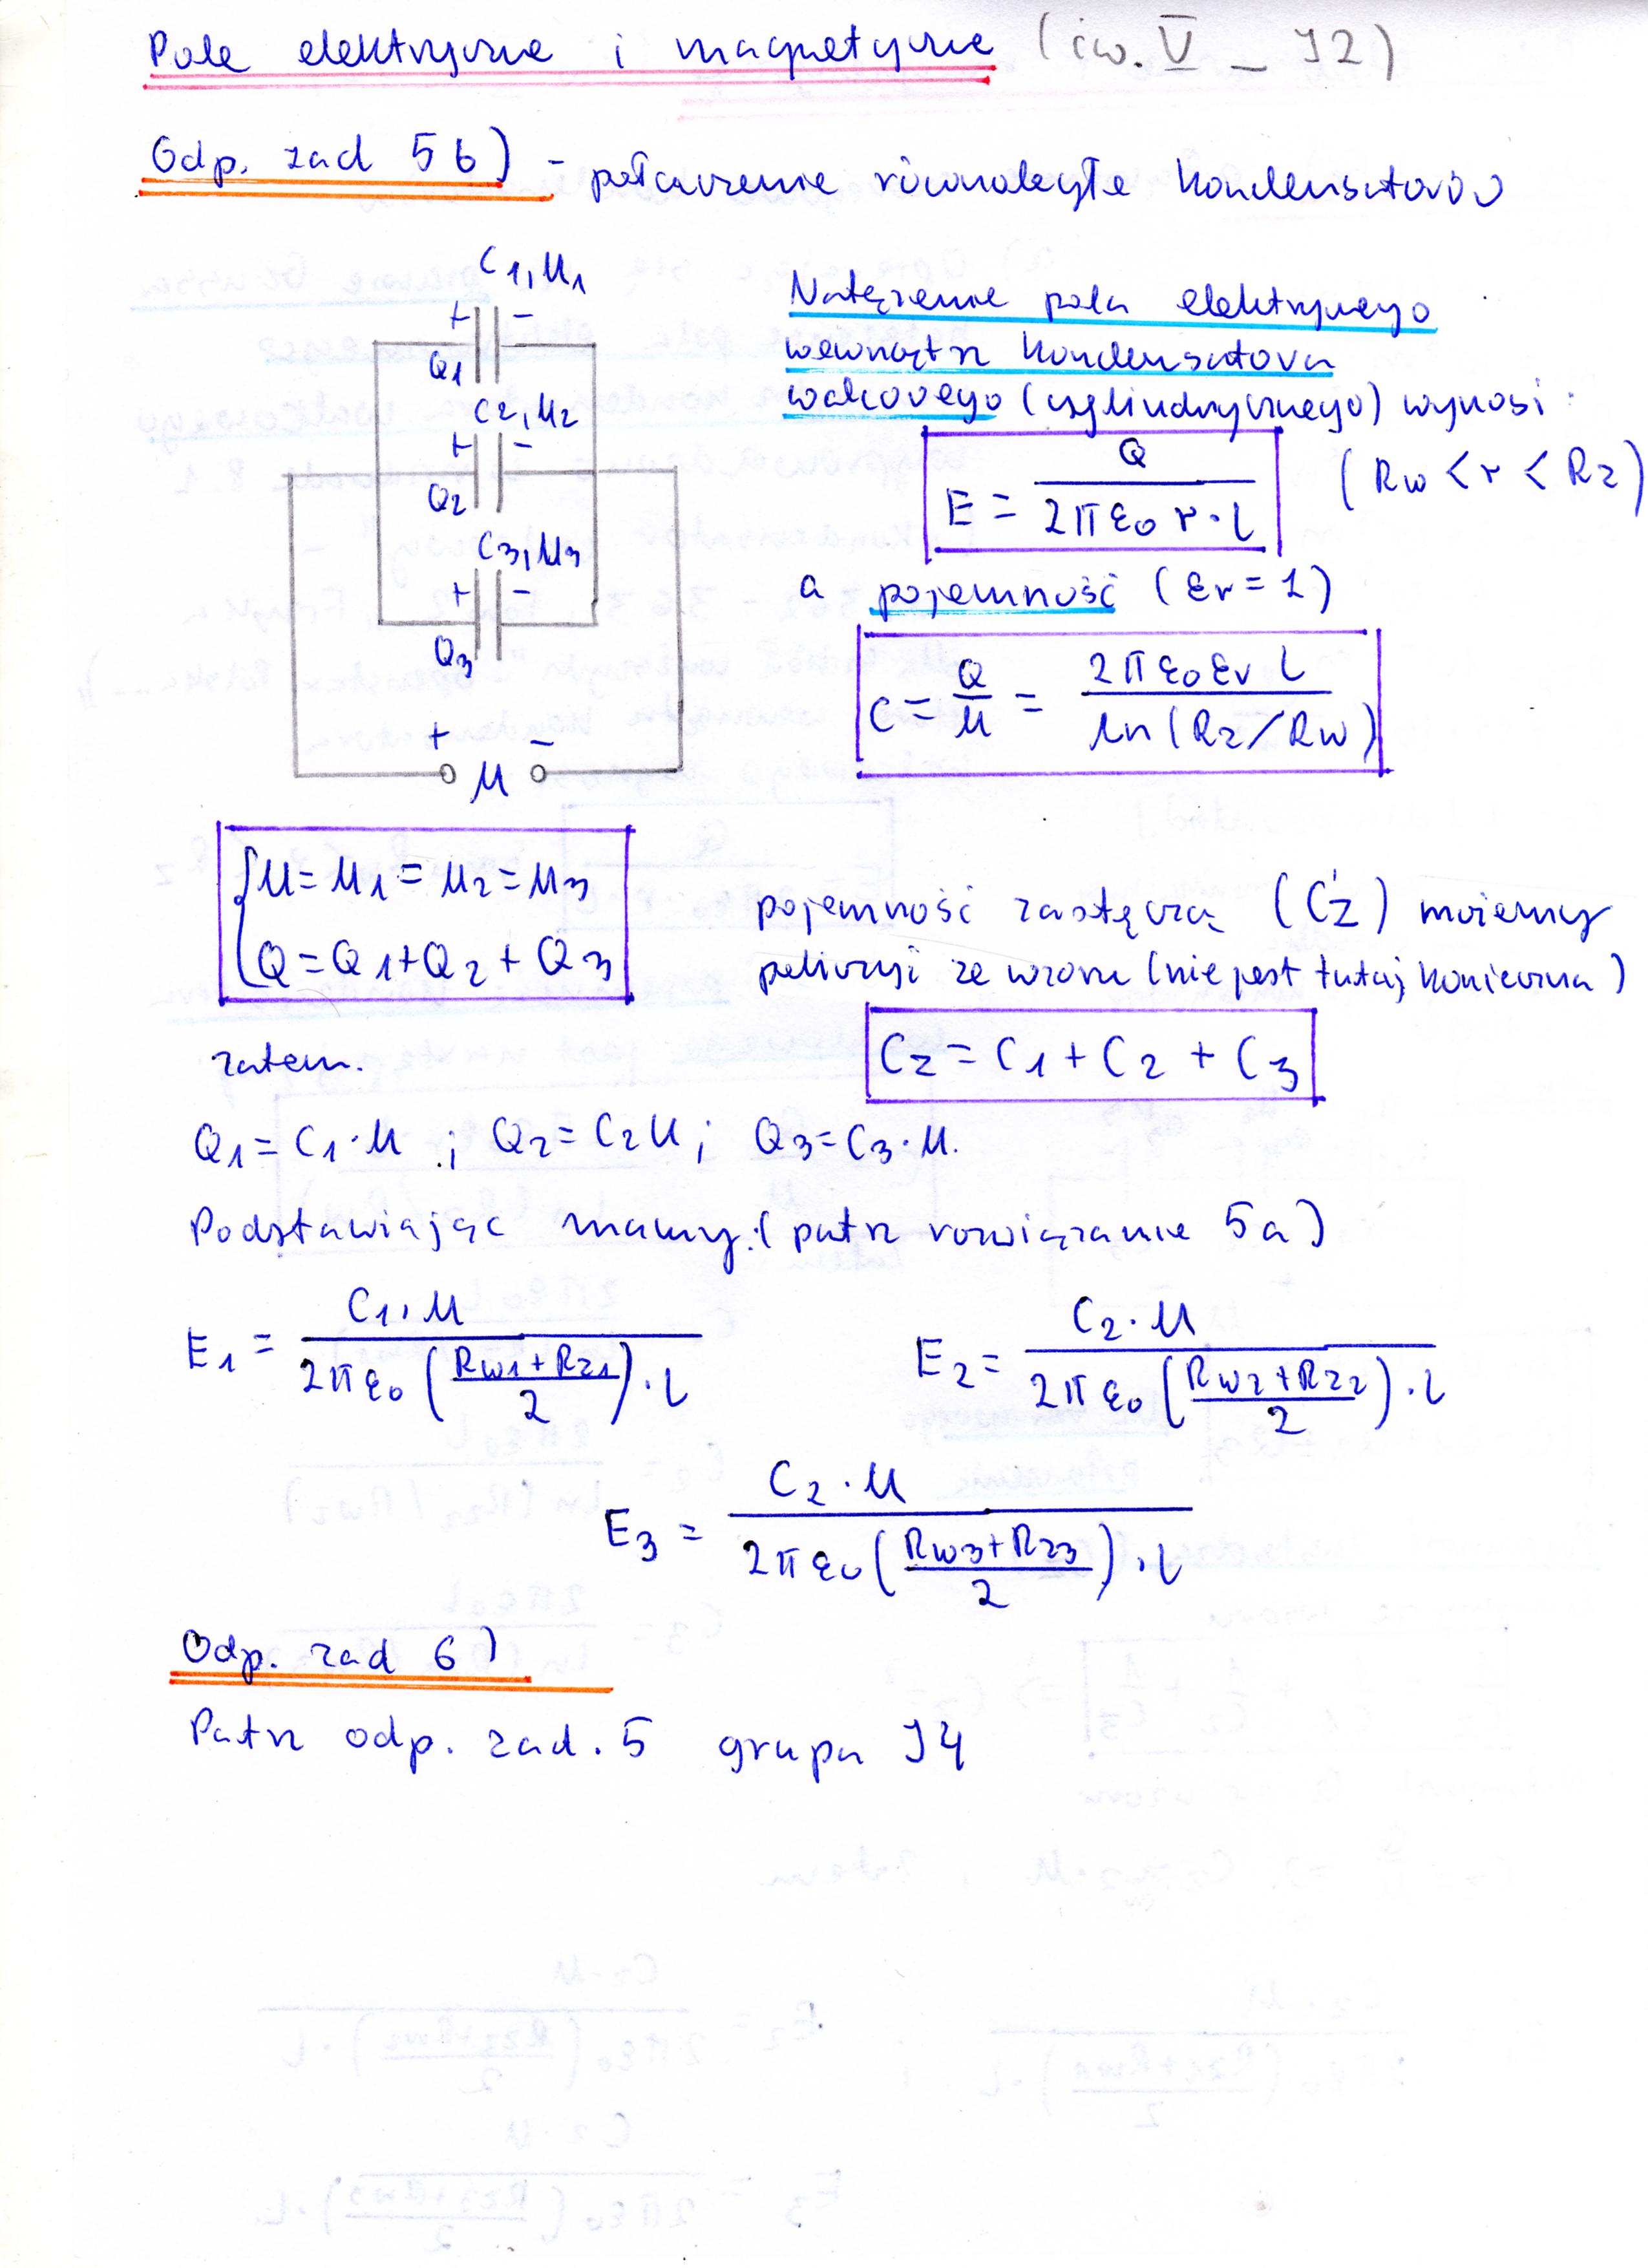 Pole elektryczne i magnetyczne (ćw. V _ J2)
Odp. zad 5 b) - połączenie równoległe kondensatorów
C1, U1
+ -
Q1
C2, U2
+ -
Q2
C3, U3
+ -
Q3
+ U -
Natężenie pola elektrycznego
wewnątrz kondensatora
walcowego (cylindrycznego) wynosi:
E = Q / 2πε0 r·l (Rw < r < Rz)
a pojemność (εr = 1)
C = Q/U = 2πε0 εr l / ln(Rz/Rw)
{U = U1 = U2 = U3
Q = Q1 + Q2 + Q3
pojemność zastęczą (Cz) możemy
policzyć ze wzoru (nie jest tutaj konieczna)
Cz = C1 + C2 + C3
zatem.
Q1 = C1·U ; Q2 = C2 U ; Q3 = C3·U.
Podstawiając mamy: (patrz rozwiązanie 5a)
E1 = C1·U / 2πε0 (Rw1+Rz1 / 2)·l
E2 = C2·U / 2πε0 (Rw2+Rz2 / 2)·l
E3 = C2·U / 2πε0 (Rw3+Rz3 / 2)·l
Odp. zad 6)
Patrz odp. zad. 5 grupa J4